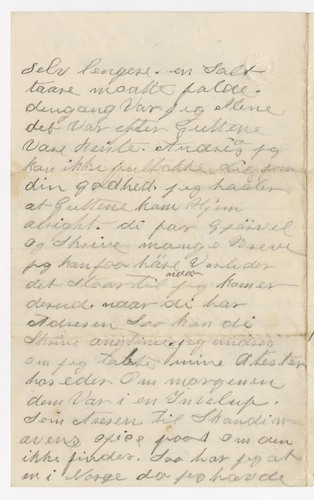 selv lengere. en Salt
taare maatte falde.
dengang Var jeg Alene
det Var efter Guttene
Vare Reiste. Andrias jeg
kan ikke fultakke dig for
din Godhed. jeg haaber
at Guttene kam Hjem
alright. di faar
og Skrive mange Breve
jeg kan faa høre Vorledes
det Staar til naar jeg kamer
derud. naar di har
Adresen Saa kan di
Skrive jeg undres
om jeg tabte mine Atester
hos eder Om morgenen
dem Var i en Invelup.
Som Adresen til Skandin
avens ofice paa om den
ikke finder. Saa har jeg at
en i Norge da jeg havde